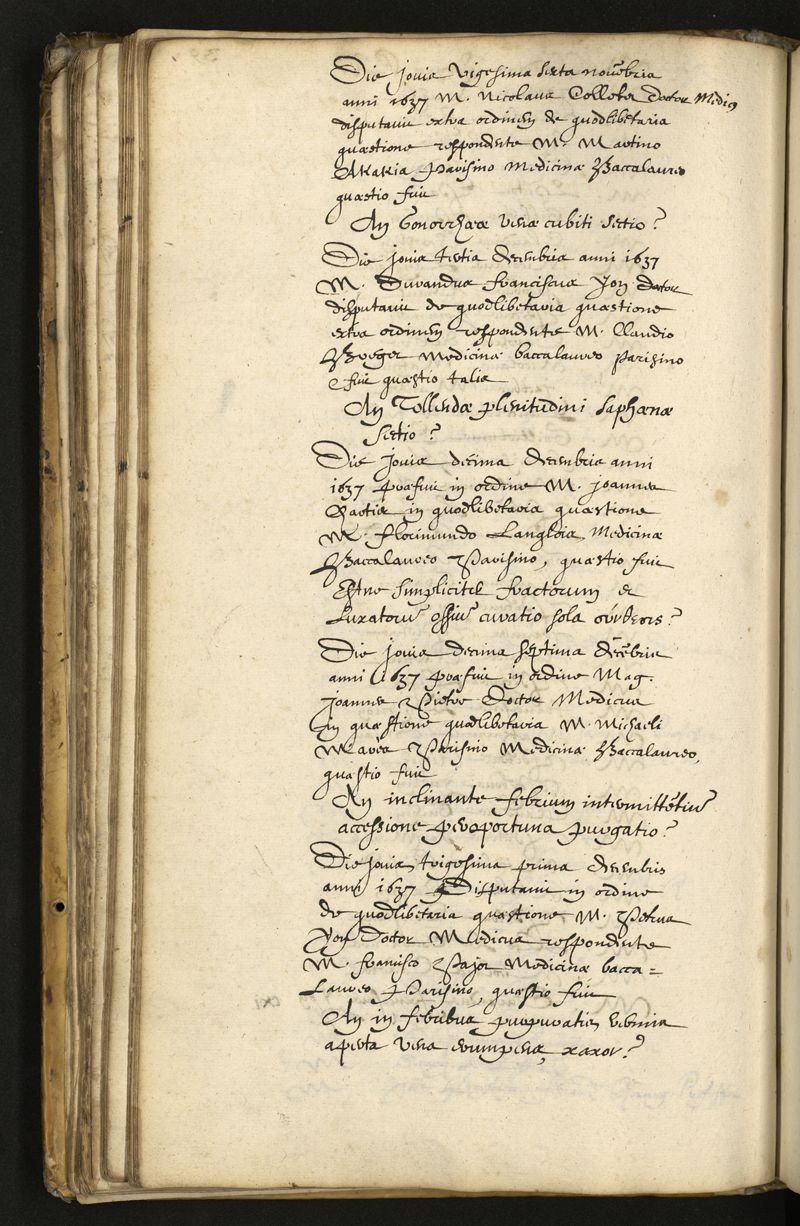 Die jovis vigesima sexta novēbris
anni 1637 M. Nicolaus Colletet Doctor Medicg
disputavit extra ordinem de quodlibetaria
quæstione respondente M. Martino
Akakia Parisino Medicinæ Baccalaureo
quæstio fuit
An Gonorrhææ venæ cubiti sectio?
Die jovis tertia decembris anni 1637
M. Durandus franciscus Yon doctor
disputavit de quodlibetaria quæstione
extra ordinem respondente M. Claudio
Breget Medicinæ baccalaureo Parisino
& fuit quæstio talis
An Tollendæ plenitudini saphænæ
sectio?
Die jovis decima decembris anni
1637 præfuit in ordine M. joannes
in quodlibetaria quæstione
M. florimundo Langlois Medicinæ
Baccalaureo Parisino, quæstio fuit
Estne simpliciter fractorum et
Luxatorū ossiū curatio sola σύνθεσις?
Die jovis decima septima decēbris
anni 1637 præfuit in ordine Mag.
joannes Pietre Doctor Medicus
in quæstione quodlibetaria M. Michaeli
Marès Parisino Medicinæ Baccalaureo,
quæstio fuit
An inclinante febrium intermittētiū
accessione peroportuna purgatio?
Die jovis trigesima prima decembris
anni 1637 Disputavit in ordine
de quodlibetaria quæstione M. Petrus
Yon Doctor Medicus respondente
M. francisco Pajot Medicinæ bacca=
Laureo Parisino, quæstio fuit
An in febribus purpuratis, vermis
aperta vena erumpens, κακον?